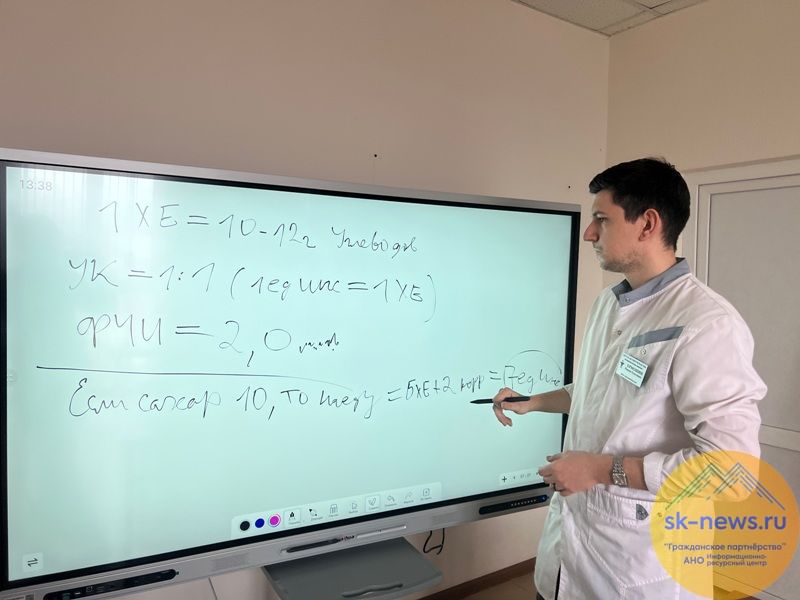 13:38
1 ХЕ = 10-12г углеводов
УК = 1:1 (1ед инс = 1 ХЕ)
ФЧИ = 2,0
Если сахар 10, то на еду = 5ХЕ+2 корр = 7ед инс
sk-news.ru
"Гражданское партнёрство"
АНО Информационно-
ресурсный центр